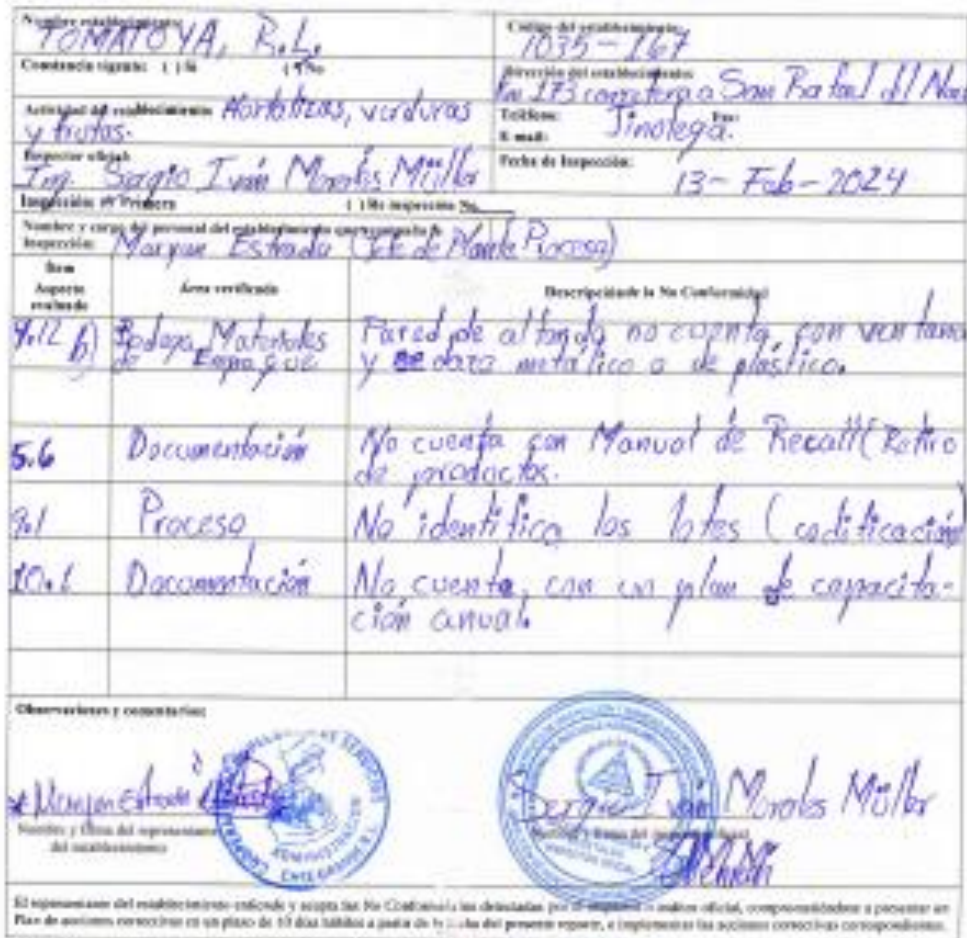 Nombre establecimiento: TOMATOYA, R.L.
Código del establecimiento: 1035-167
Constancia vigente: ( ) Si ( ) No
Dirección del establecimiento: Km 173 carretera a San Rafael del Nor
Actividad del establecimiento: Hortalizas, verduras
y frutas.
Teléfono: Fax:
E-mail: Jinotega.
Inspector oficial: Ing. Sergio Iván Morales Müller
Fecha de Inspección: 13-Feb-2024
Inspección: Primera ( ) Re inspección No.
Nombre y cargo del personal del establecimiento que acompaña la
Inspección: Estrada (Jefe de Planta Proceso)
Ítem
Aspecto
evaluado
Área verificada
Descripción de la No Conformidad
b) Bodega Materiales
de Empaque
Pared de al fondo no cuenta con ventana
y cedazo metálico o de plástico.
5.6 Documentación
No cuenta con Manual de Recall (Retiro
de productos.
9.1 Proceso
No identifica los lotes (codificación)
10.1 Documentación
No cuenta con un plan de capacita-
ción anual.
Observaciones y comentarios:
Estrada
Nombre y firma del representante
del establecimiento
Sergio Iván Morales Müller
El representante del establecimiento entiende y acepta las No Conformidades detectadas por el inspector o auditor oficial, comprometiéndose a presentar un
Plan de acciones correctivas en un plazo de 10 días hábiles a partir de la fecha del presente reporte, e implementar las acciones correctivas correspondientes.